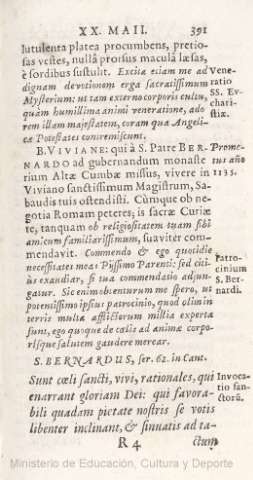 XX. MAII. 391
lutulenta platea procumbens, pretio-
sas vestes, nullâ prorsus maculâ læsas,
è sordibus sustulit. Excita etiam me ad Vene-
dignam devotionem erga sacratissimum ratio
Mysterium: ut tam externo corporis cultu, SS. Eu-
quàm humillima animi veneratione, ado- chari-
rem illam majestatem, coram qua Angeli- stiæ.
cæ Potestates contremiscunt.
B. VIVIANE: qui à S. Patre BER- Prome-
NARDO ad gubernandum monaste tus año
rium Altæ Cumbæ missus, vivere in 1135.
Viviano sanctissimum Magistrum, Sa-
baudis tuis ostendisti. Cùmque ob ne-
gotia Romam peteres; is sacræ Curiæ
te, tanquam ob religiositatem tuam sibi
amicum familiarissimum, suaviter com-
mendavit. Commendo & ego quotidie
necessitates meas Piissimo Parenti: sed citi- Patro-
ùs exaudiar, si tua commendatio adjun- cinium
gatur. Sic enim obenturum me spero, ut S. Ber-
potentissimo ipsius patrocinio, quod olim in nardi.
terris multa afflictorum millia experta
sunt, ego quoque de cœlis ad animæ corpo-
risque salutem gaudere merear.
S. BERNARDUS, ser. 62. in Cant.
Sunt cœli sancti, vivi, rationales, qui Invoca-
enarrant gloriam Dei: qui favora- tio san-
bili quadam pietate nostris se votis ctorũ.
libenter inclinant, & sinuatis ad ta-
R 4 ctum
Ministerio de Educación, Cultura y Deporte